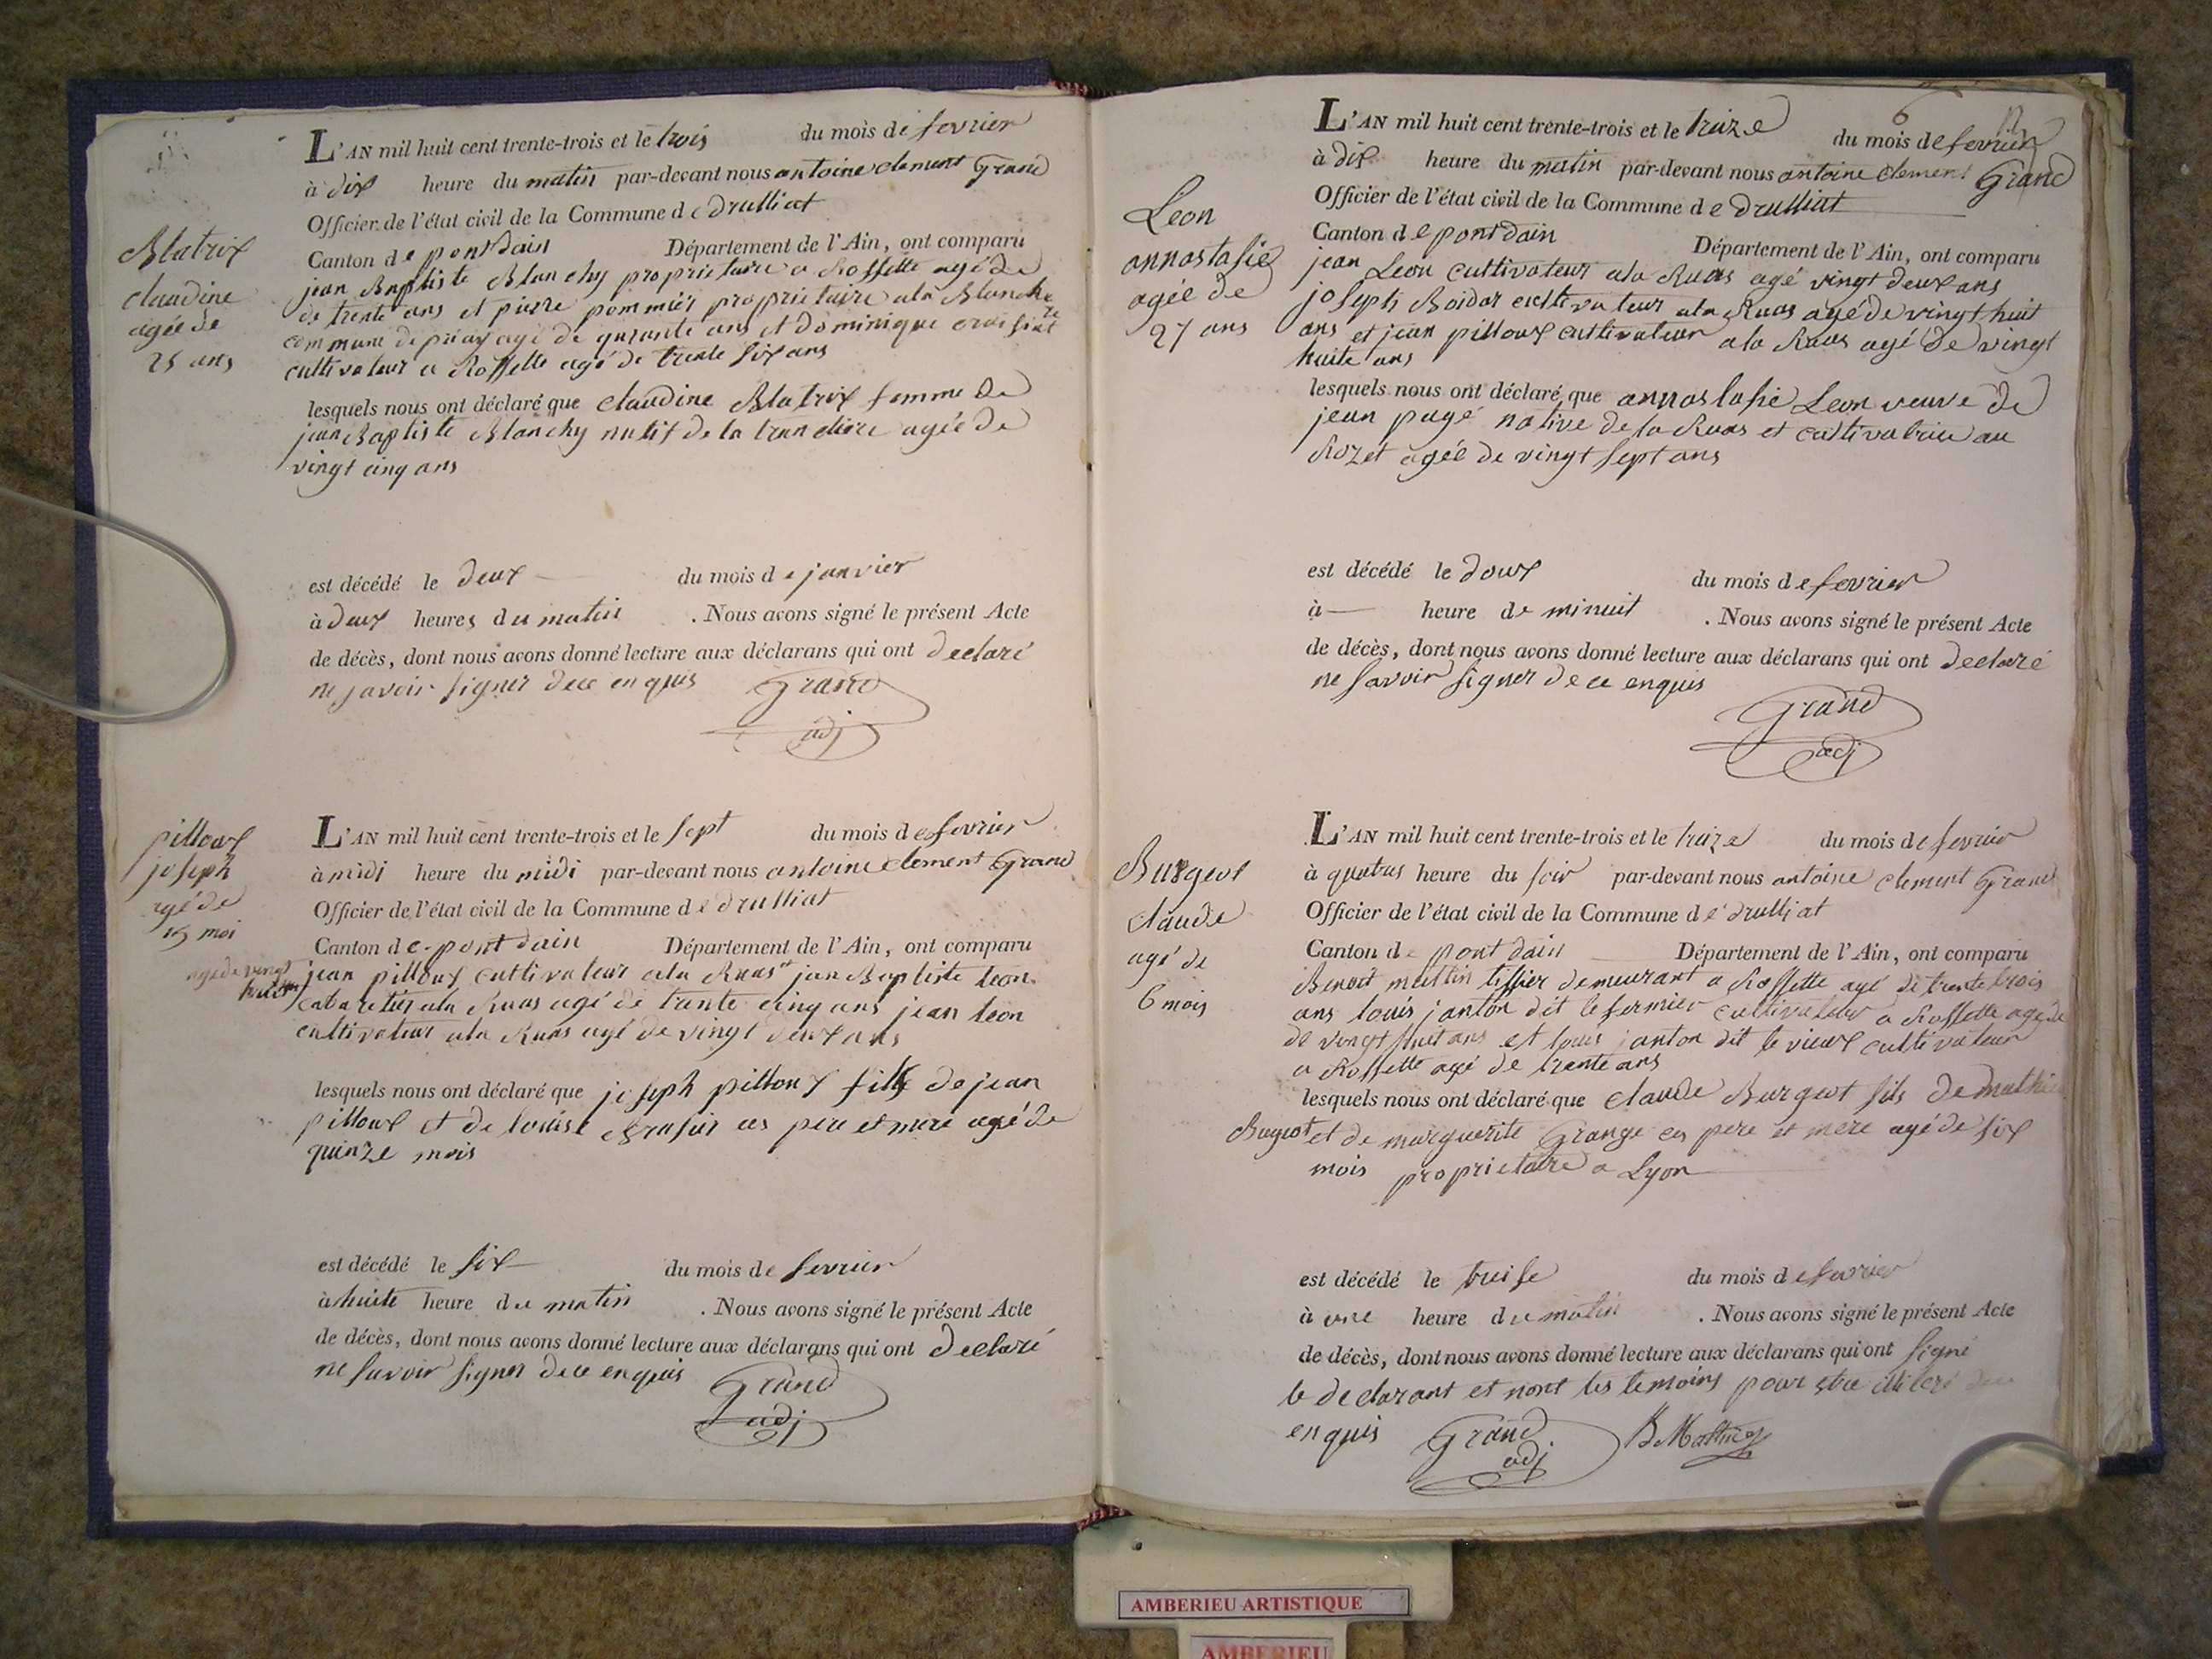 L'AN mil huit cent trente-trois et le trois du mois de fevrier
à dix heure du matin par-devant nous antoine clement Grand
Officier de l'état civil de la Commune de drulliat
Canton de pontdain Département de l'Ain, ont comparu
Blatrix
claudine
agée de
25 ans
jean Baptiste Blanchy proprietaire a Rossette agé de
de trente ans et pierre pommier proprietaire ala
commune de priay agé de qurante ans et dominique
cultivateur a Rossette agé de trente six ans
lesquels nous ont déclaré que claudine Blatrix femme de
jean Baptiste Blanchy natif de la agée de
vingt cinq ans
est décédé le deux du mois de janvier
à deux heures du matin . Nous avons signé le présent Acte
de décès, dont nous avons donné lecture aux déclarans qui ont declaré
ne savoir signer dece enquis Grand
adj
L'AN mil huit cent trente-trois et le sept du mois de fevrier
à midi heure du midi par-devant nous antoine clement Grand
Officier de l'état civil de la Commune de drulliat
Canton de pont dain Département de l'Ain, ont comparu
pilloux
joseph
agé de
15 moi
agé de vingt
huit ans
jean pilloux cultivateur ala Ruas et jean Baptiste Leon
cabaretier ala Ruas agé de trante cinq ans jean Leon
cultivateur ala Ruas agé de vingt deux ans
lesquels nous ont déclaré que joseph pilloux fils de jean
pilloux et de louise ces pere et mere agé de
quinze mois
est décédé le six du mois de fevrier
à huite heure du matin . Nous avons signé le présent Acte
de décès, dont nous avons donné lecture aux déclarans qui ont declaré
ne savoir signer dece enquis Grand
adj
6
L'AN mil huit cent trente-trois et le treize du mois de fevrier
à dix heure du matin par-devant nous antoine clement Grand
Officier de l'état civil de la Commune de drulliat
Canton de pont dain Département de l'Ain, ont comparu
Leon
annastasie
agée de
27 ans
jean Leon cultivateur ala Ruas agé vingt deux ans
joseph Boidar cultivateur ala Ruas agé de vingt huit
ans et jean pilloux cultivateur ala Ruas agé de vingt
huite ans
lesquels nous ont déclaré que annastasie Leon veuve de
jean page native de la Ruas et cultivatrice au
Rozet agée de vingt sept ans
est décédé le doux du mois de fevrier
à heure de minuit . Nous avons signé le présent Acte
de décès, dont nous avons donné lecture aux déclarans qui ont declaré
ne savoir signer de ce enquis
Grand
adj
L'AN mil huit cent trente-trois et le treize du mois de fevrier
à quatres heure du soir par-devant nous antoine clement Grand
Officier de l'état civil de la Commune de drulliat
Canton de pont dain Département de l'Ain, ont comparu
Burgeot
claude
agé de
6 mois
Benoit tissier demeurant a Rossette agé de trente trois
ans louis janton dit le fermier cultivateur a Rossette agé de
de vingt huit ans et louis janton dit le vieux cultivateur
a Rossette agé de trante ans
lesquels nous ont déclaré que claude Burgeot fils de
Burgeot et de marguerite Grange ces pere et mere agé de six
mois proprietaire a Lyon
est décédé le treise du mois de fevrier
à une heure du matin . Nous avons signé le présent Acte
de décès, dont nous avons donné lecture aux déclarans qui ont signé
le declarant et nont les temoins pour etre
enquis Grand
adj
AMBERIEU ARTISTIQUE
AMBERIEU